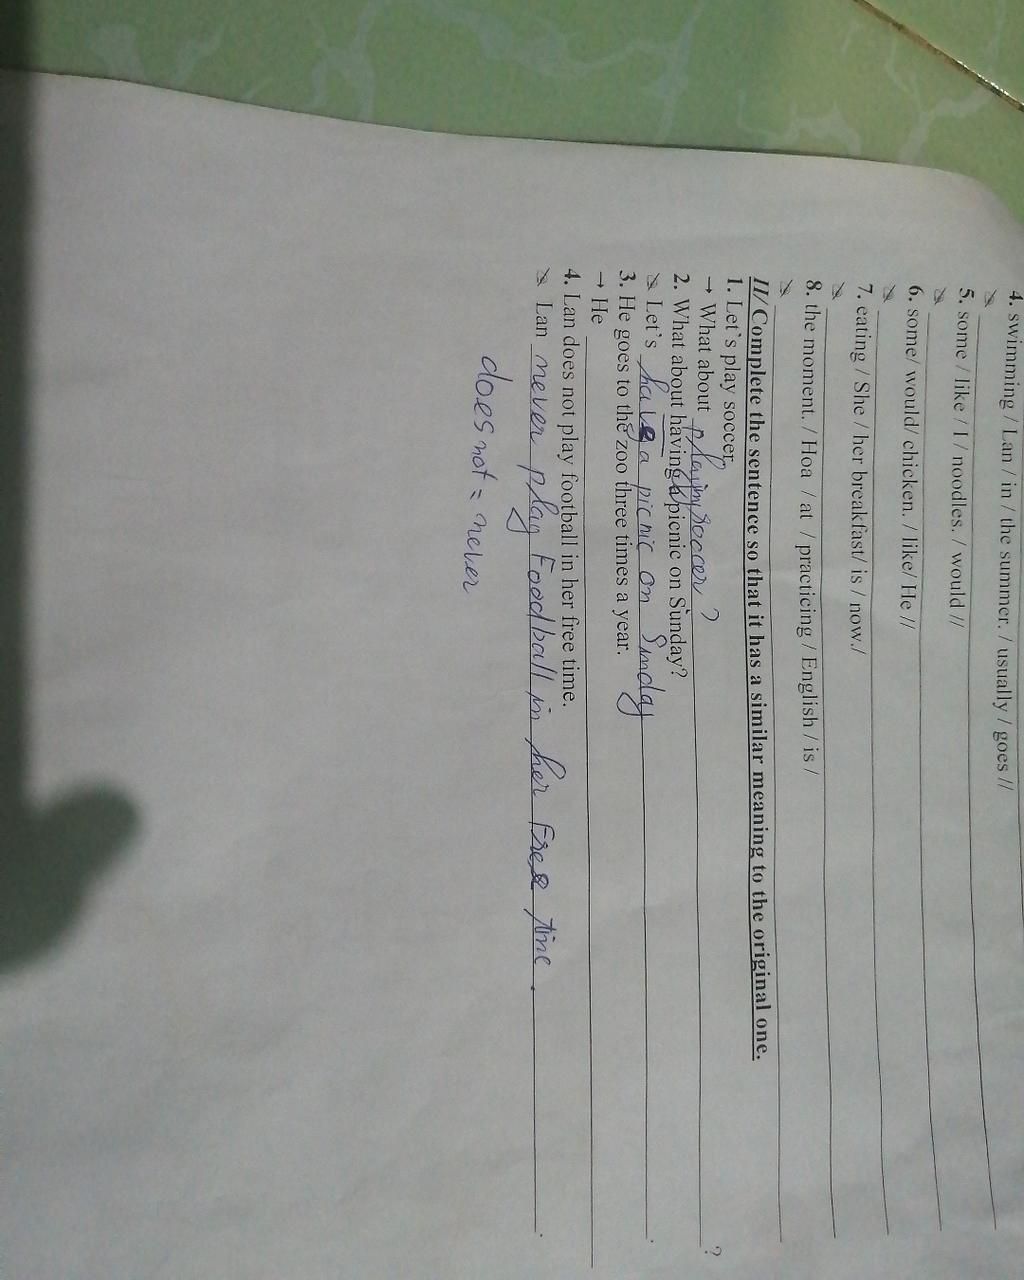 4. swimming / Lan / in / the summer. / usually / goes //
5. some / like / I / noodles. / would //
6. some/ would/ chicken. / like/ He //
7. eating / She / her breakfast/ is / now./
8. the moment. / Hoa / at / practicing / English / is /
II/Complete the sentence so that it has a similar meaning to the original one.
1. Let's play soccer.
→ What about playing soccer ? ?
2. What about having a picnic on Sunday?
Let's have a picnic on Sunday .
3. He goes to the zoo three times a year.
→ He
4. Lan does not play football in her free time.
Lan never play Foodball in her Free time . .
does not = never